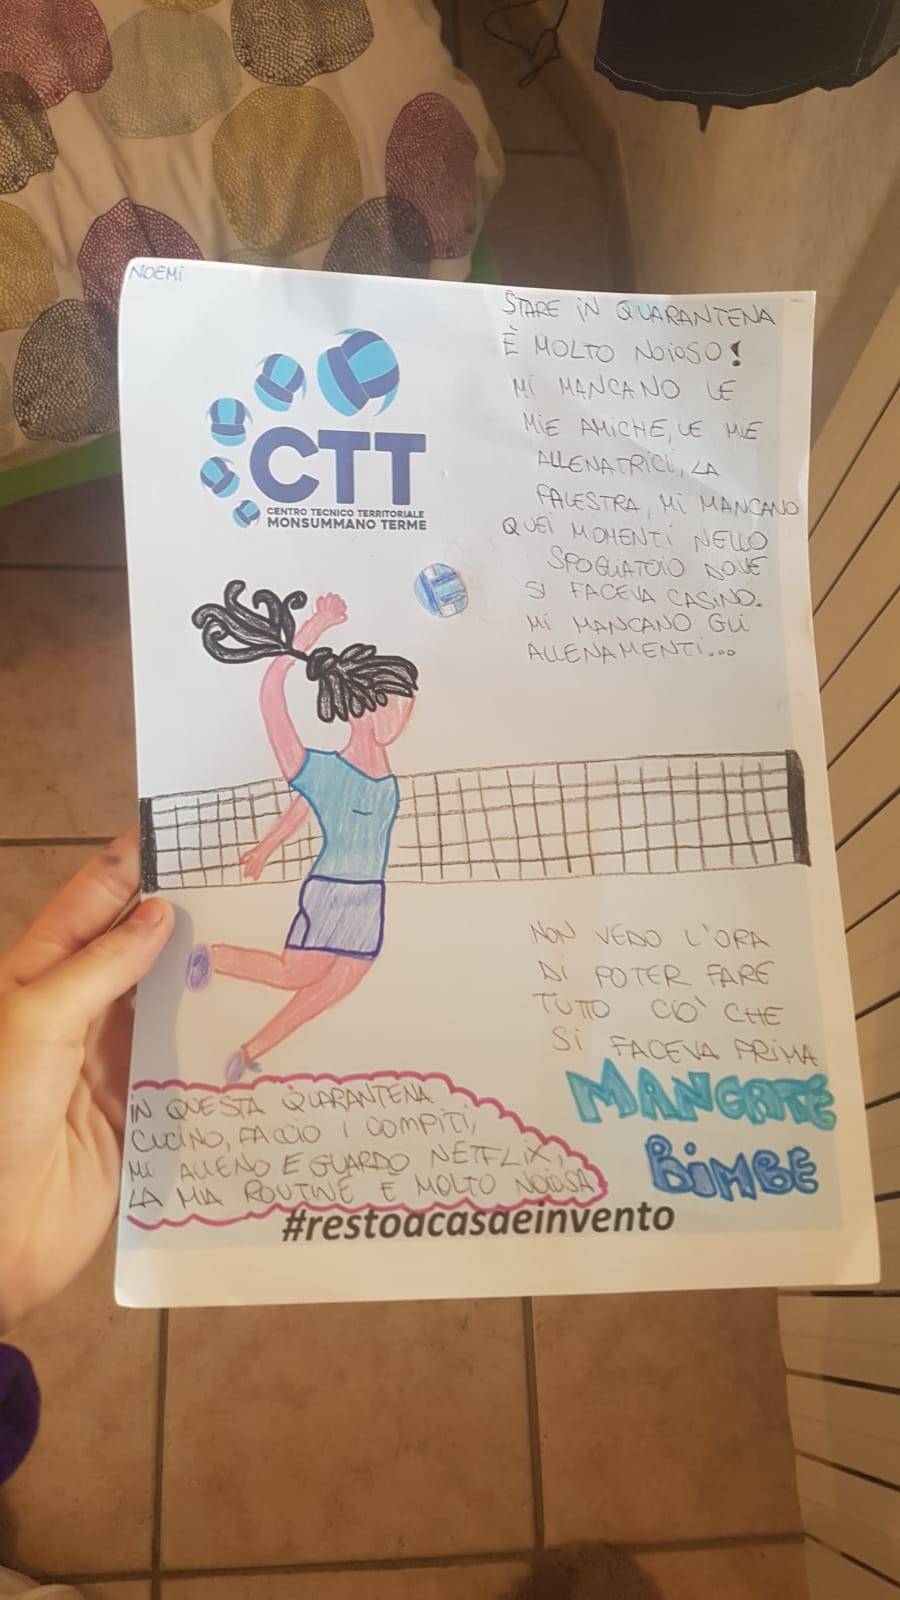 NOEMI
STARE IN QUARANTENA
È MOLTO NOIOSO!
MI MANCANO LE
MIE AMICHE, LE MIE
ALLENATRICI, LA
PALESTRA, MI MANCANO
QUEI MOMENTI NELLO
SPOGLIATOIO DOVE
SI FACEVA CASINO.
MI MANCANO GLI
ALLENAMENTI...
CTT
CENTRO TECNICO TERRITORIALE
MONSUMMANO TERME
NON VEDO L'ORA
DI POTER FARE
TUTTO CIÒ CHE
SI FACEVA PRIMA
MANCATE
BIMBE
IN QUESTA QUARANTENA
CUCINO, FACCIO I COMPITI,
MI ALLENO E GUARDO NETFLIX,
LA MIA ROUTINE È MOLTO NOIOSA
#restoacasaeinvento